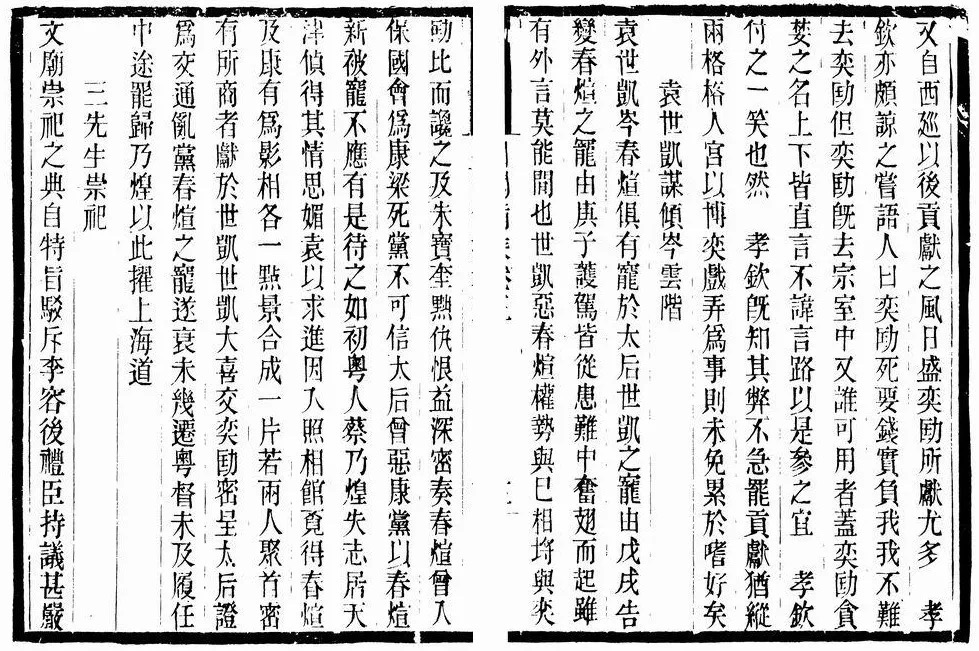 又自西廵以後貢獻之風日盛奕劻所獻尤多 孝
欽亦頗諒之嘗語人曰奕劻死要錢實負我我不難
去奕劻但奕劻旣去宗室中又誰可用者蓋奕劻貪
婪之名上下皆直言不諱言路以是參之宜 孝欽
付之一笑也然 孝欽旣知其弊不急罷貢獻猶縱
兩格格人宮以博奕戲弄爲事則未免累於嗜好矣
袁世凱謀傾岑雲階
袁世凱岑春煊俱有寵於太后世凱之寵由戊戌告
變春煊之寵由庚子護駕皆從患難中奮翅而起雖
有外言莫能間也世凱惡春煊權勢與已相埓與奕
劻比而讒之及朱寶奎黜仇恨益深密奏春煊曾入
保國會爲康梁死黨不可信太后曾惡康黨以春煊
新被寵不應有是待之如初粵人蔡乃煌失志居天
津偵得其情思媚袁以求進因入照相館覓得春煊
及康有爲影相各一點景合成一片若兩人聚首密
有所商者獻於世凱世凱大喜交奕劻密呈太后證
爲交通亂黨春煊之寵遂衰未幾遷粵督未及履任
中途罷歸乃煌以此擢上海道
三先生崇祀
文廟崇祀之典自特旨駁斥李容後禮臣持議甚嚴